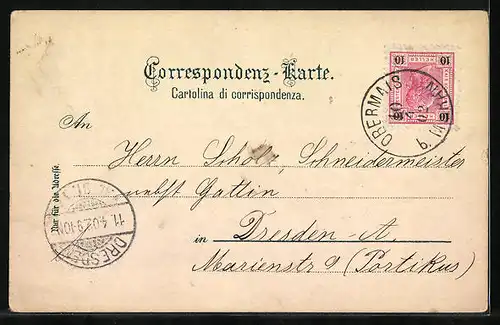 Correspondenz-Karte.
Cartolina di corrispondenza.
10 10
HELLER
10 10
OBERMAIS
An
Herrn Scholz, Schneidermeister
nebst Gattin
in Dresden-A.
Marienstr 9 (Portikus)
Nur für die Adresse.
11.4.02.9-10N
DRESDEN